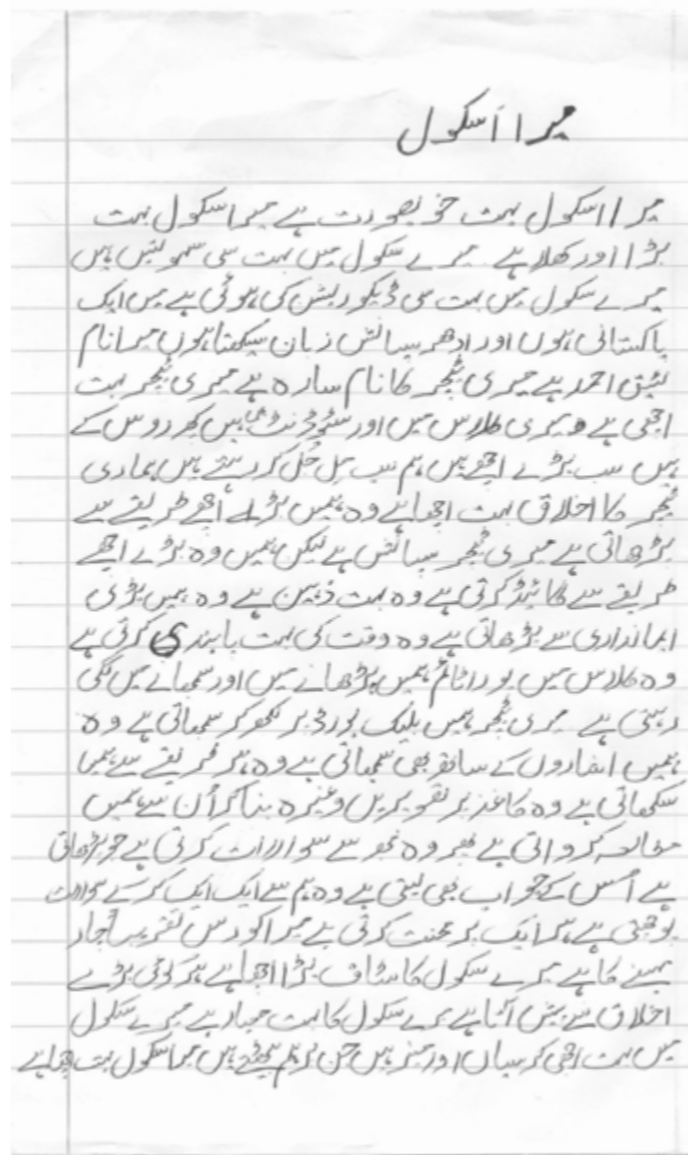 میرا اسکول
میرا اسکول بہت خوبصورت ہے میرا سکول بہت
بڑا اور کھلا ہے میرے سکول میں بہت سی سہولتیں ہیں
میرے سکول میں بہت سی ڈیکوریشن کی ہوئی ہے میں ایک
پاکستانی ہوں اور ادھر سپانش زبان سیکھتا ہوں میرا نام
لئیق احمد ہے میری ٹیچر کا نام سارہ ہے میری ٹیچر بہت
اچھی ہے میری کلاس میں اور سٹوڈنٹ بھی ہیں کچھ روس کے
ہیں سب بڑے اچھے ہیں ہم سب مل جل کر رہتے ہیں ہماری
ٹیچر کا اخلاق بہت اچھا ہے وہ ہمیں بڑے اچھے طریقے سے
پڑھاتی ہے میری ٹیچر سپانش ہے لیکن ہمیں وہ بڑے اچھے
طریقے سے گائیڈ کرتی ہے وہ بہت ذہین ہے وہ ہمیں بڑی
ایمانداری سے پڑھاتی ہے وہ وقت کی بہت پابندی کرتی ہے
وہ کلاس میں پورا ٹائم ہمیں پڑھانے میں اور سمجھانے میں لگی
رہتی ہے میری ٹیچر ہمیں بلیک بورڈ پر لکھ کر سمجھاتی ہے وہ
ہمیں اشاروں کے ساتھ بھی سمجھاتی ہے وہ ہر طریقے سے ہمیں
سکھاتی ہے وہ کاغذ پر تصویریں وغیرہ بنا کر اُن سے ہمیں
مطالعہ کرواتی ہے پھر وہ ہم سے سوالات کرتی ہے جو پڑھاتی
ہے اُس کے جواب بھی لیتی ہے وہ ہم سے ایک ایک کر کے سوالات
پوچھتی ہے ہر ایک پر محنت کرتی ہے میرا کورس تقریباً چار
مہینے کا ہے میرے سکول کا سٹاف بڑا اچھا ہے ہر کوئی بڑے
اخلاق سے پیش آتا ہے میرے سکول کا بہت معیار ہے میرے سکول
میں بہت اچھی کرسیاں اور میز ہیں جن پر ہم بیٹھتے ہیں میرا سکول بہت اچھا ہے